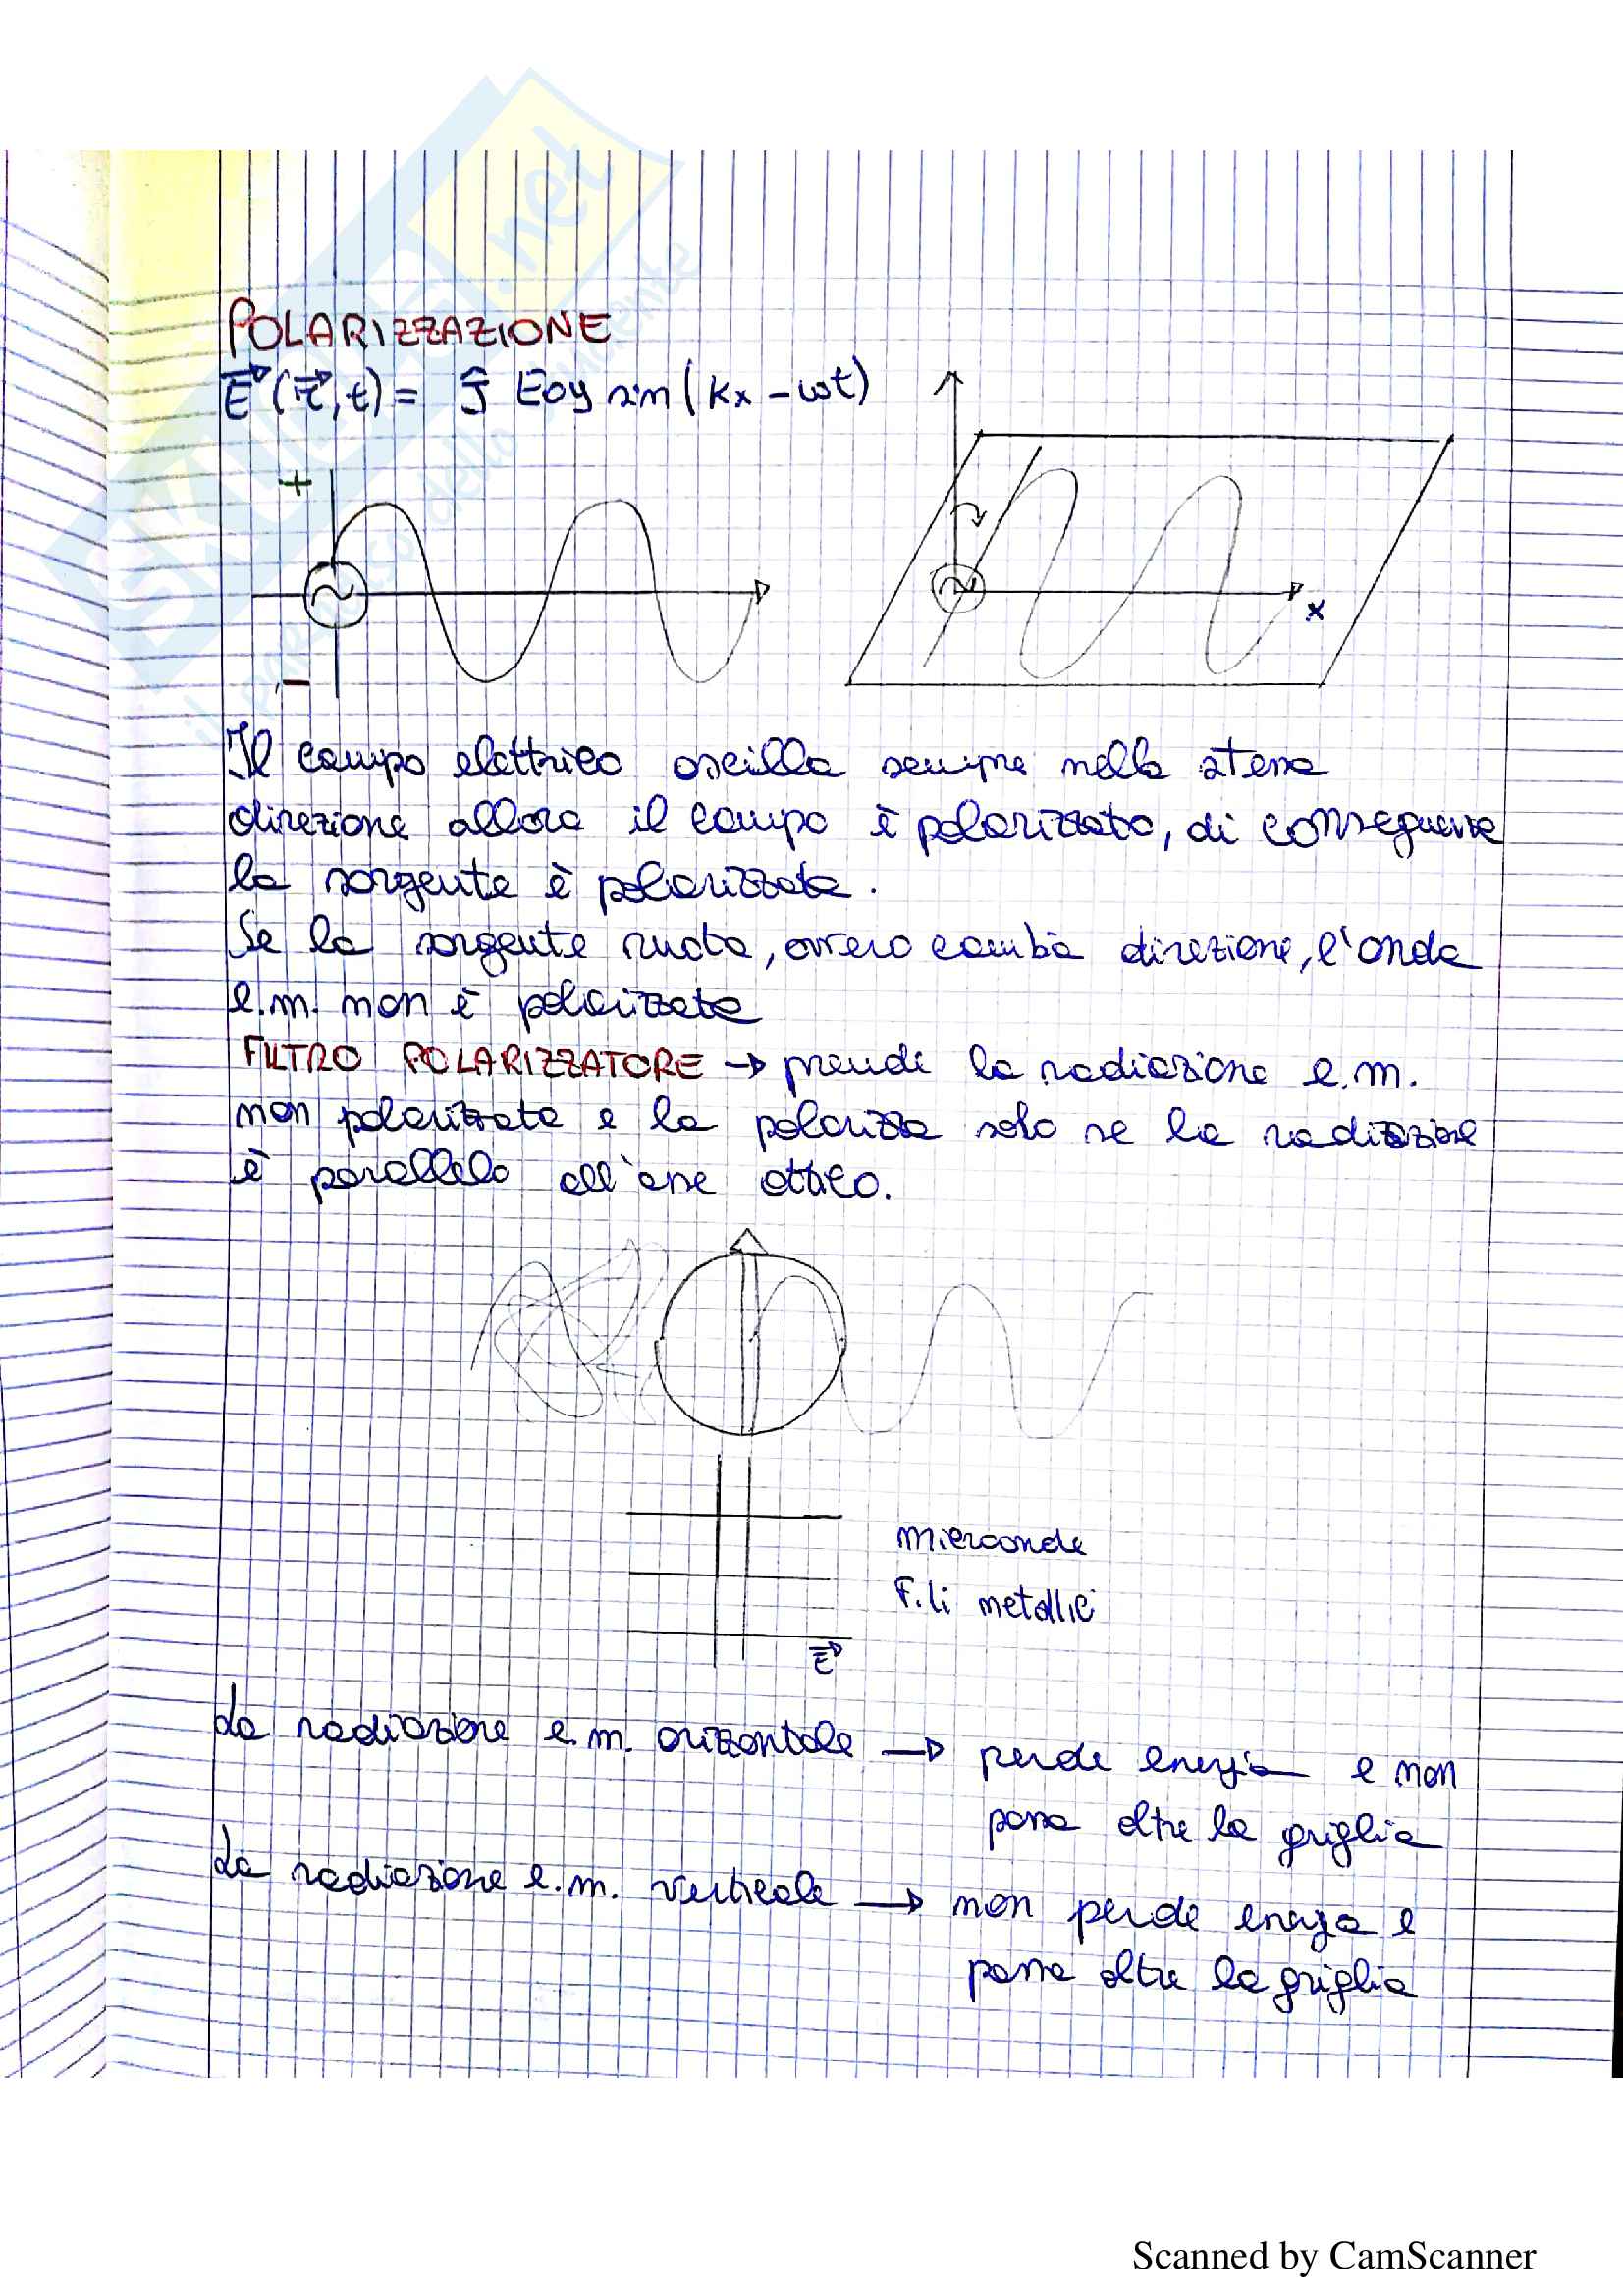 SKUOLA.net
il paradiso dello studente
POLARIZZAZIONE
E (r, t) = ĵ Eoy sin (kx - ωt)
+
-
x
Il campo elettrico oscilla sempre nella stessa
direzione allora il campo è polarizzato, di conseguenza
la sorgente è polarizzata.
Se la sorgente ruota, ovvero cambia direzione, l'onda
e.m. non è polarizzata
FILTRO POLARIZZATORE → prende la radiazione e.m.
non polarizzata e la polarizza solo se la radiazione
è parallela all'asse ottico.
microonde
Fili metallici
E
La radiazione e.m. orizzontale → perde energia e non
passa oltre la griglia
La radiazione e.m. verticale → non perde energia e
passa oltre la griglia
Scanned by CamScanner